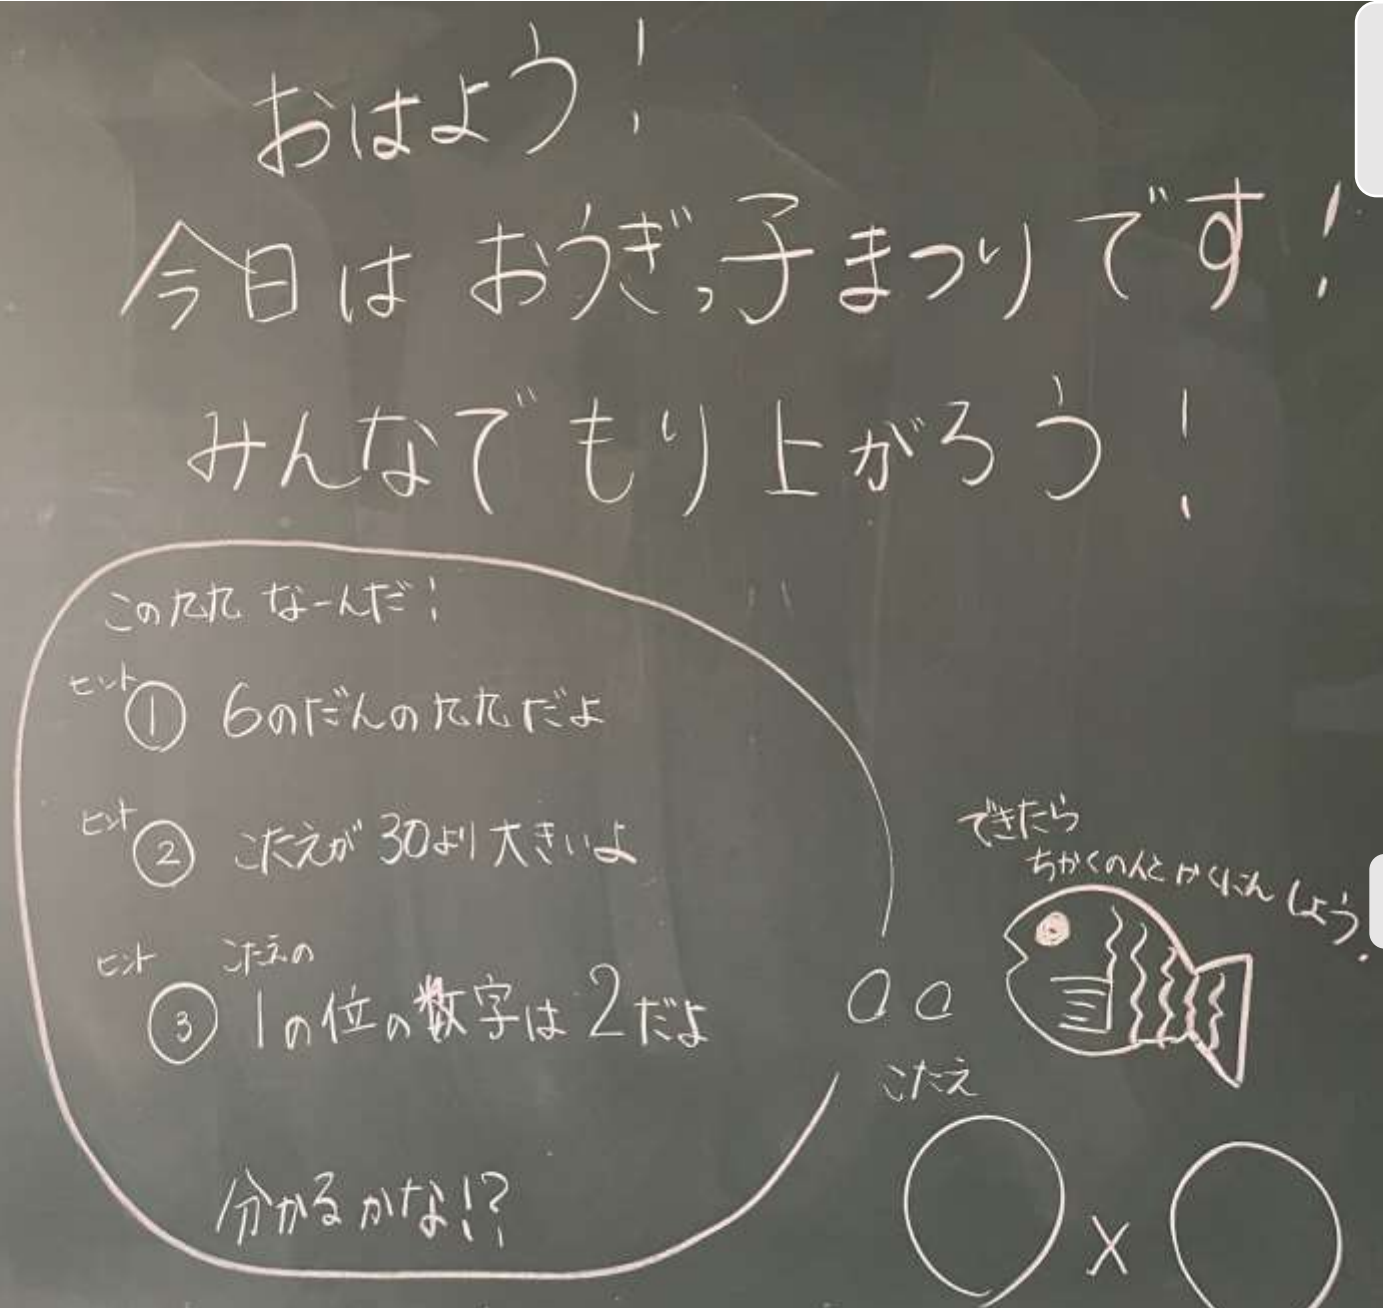 おはよう!
今日はおうぎっ子まつりです!
みんなでもり上がろう!
この九九なーんだ!
ヒント① 6のだんの九九だよ
ヒント② こたえが30より大きいよ
ヒント③ こたえの1の位の数字は2だよ
分かるかな!?
できたら
ちかくの人とかくにんしよう.
こたえ
×